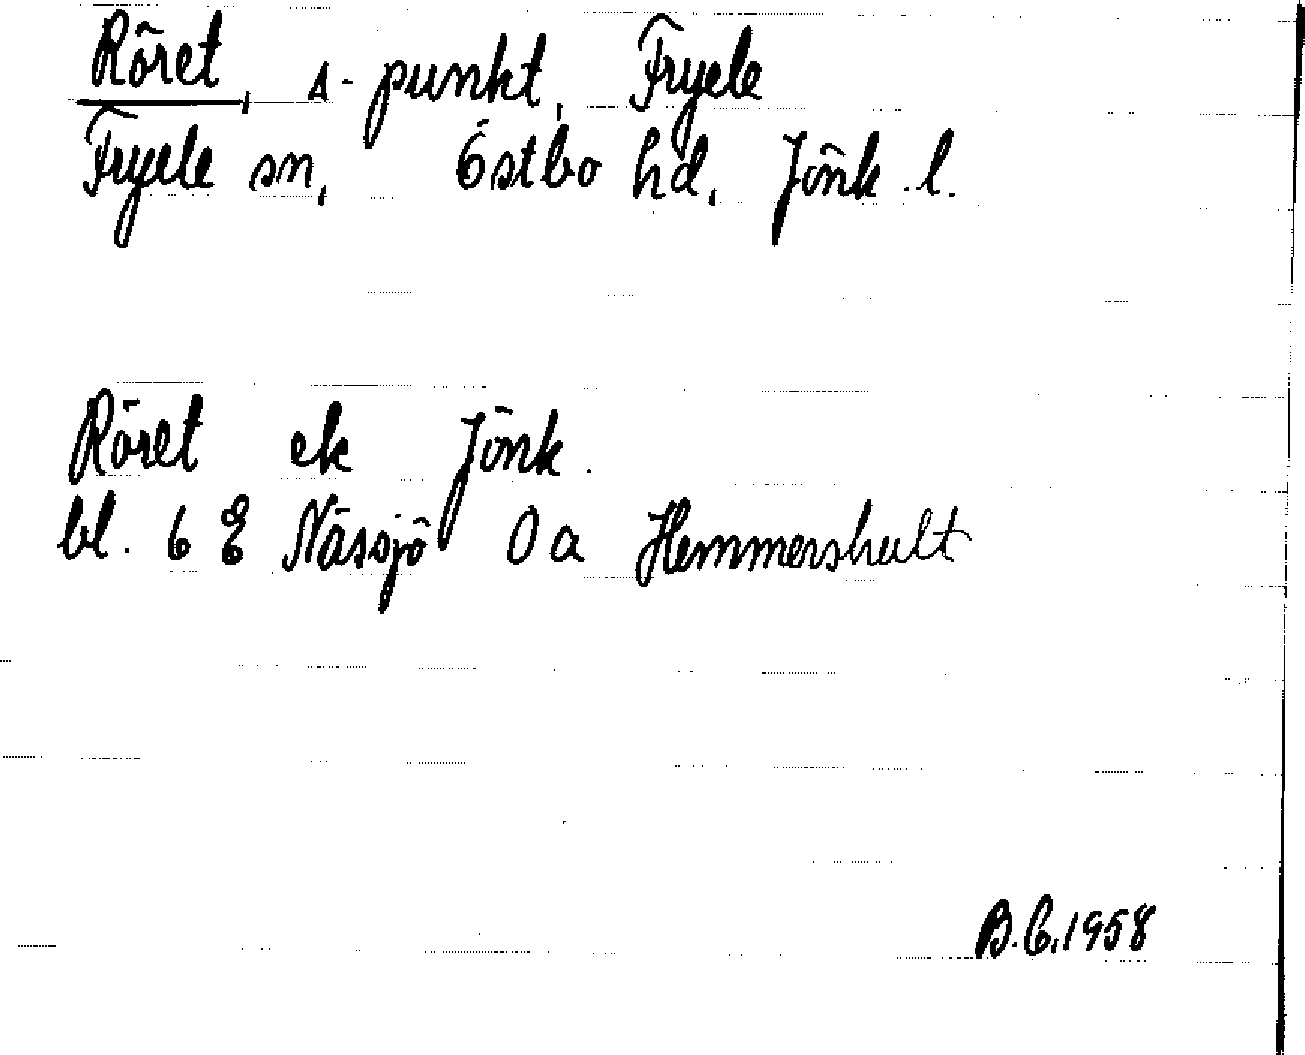 Röret, A-punkt, Fryele
Fryele sn, Östbo hd, Jönk. l.
Röret ek Jönk.
bl. 6 E Nässjö 0 a Hemmershult
B.C. 1958